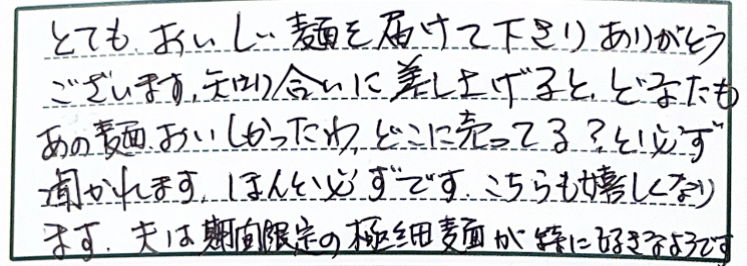 とても、おいしい麺を届けて下さりありがとう
ございます。知り合いに差し上げると、どなたも
あの麺、おいしかったわ、どこに売ってる?と必ず
聞かれます。ほんと必ずです。こちらも嬉しくなり
ます。夫は期間限定の極細麺が特に好きなようです